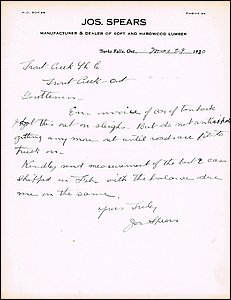 P.O. BOX 98
PHONE 44
JOS. SPEARS
MANUFACTURER & DEALER OF SOFT AND HARDWOOD LUMBER
Burks Falls, Ont., 1920
Trout Creek
Trout Creek Ont
Gentlemen
En invoice of car of
this out on sleighs. But do not
getting any more out until roads are fit to
truck on.
Kindly send measurement of the last 2 cars
shipped in Feb with the balance due
me on the same.
Yours Truly
Jos Spears